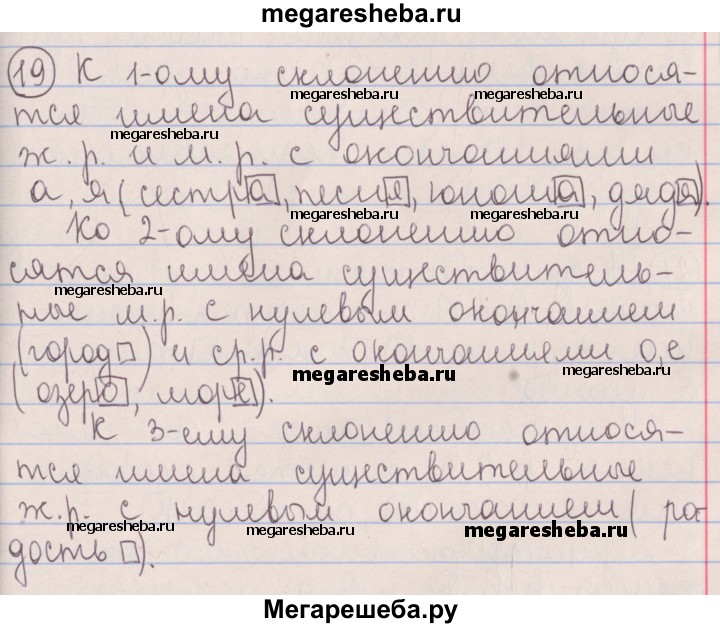 megaresheba.ru
19 К 1-ому склонению относя-
megaresheba.ru megaresheba.ru
тся имена существительные
megaresheba.ru
ж.р. и м.р. с окончаниями
а, я (сестра, песня, юноша, дядя).
megaresheba.ru megaresheba.ru
Ко 2-ому склонению отно-
сятся имена существитель-
megaresheba.ru
ные м.р. с нулевым окончанием
(город ) и ср.р. с окончаниями о, е
megaresheba.ru megaresheba.ru
(озеро, море).
К 3-ему склонению относя-
тся имена существительные
ж.р. с нулевым окончанием (ра-
megaresheba.ru megaresheba.ru megaresheba.ru
дость ).
Мегарешеба.ру